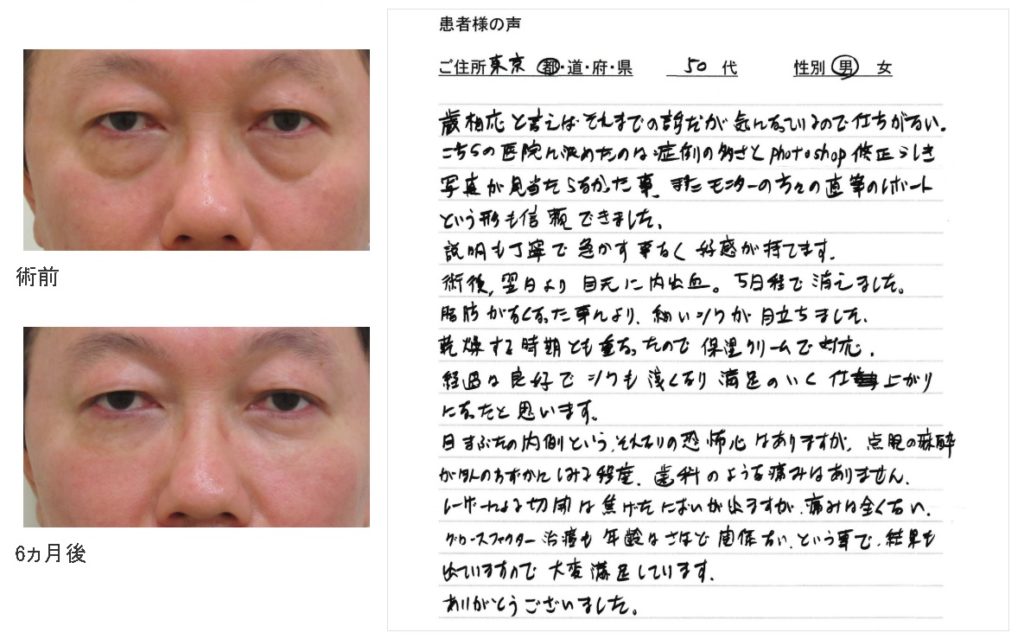 術前
6ヵ月後
患者様の声
ご住所 東京 都・道・府・県 50 代 性別 男 女
歳相応と言えばそれまでの話だが気になっているので仕方がない。
こちらの医院に決めたのは症例の多さとphotoshop修正らしき
写真が見当たらなかった事、またモニターの方々の直筆のレポート
という形も信頼できました。
説明も丁寧で急かす事なく好感が持てます。
術後、翌日より目元に内出血。5日程で消えました。
脂肪がなくなった事により、細いシワが目立ちました。
乾燥する時期とも重なったので保湿クリームで対応。
経過は良好でシワも浅くなり満足のいく仕上がり
になったと思います。
目まぶたの内側という、それなりの恐怖心はありますが、点眼の麻酔
がほんのわずかにしみる程度、歯科のような痛みはありません。
レーザーによる切開は焦げたにおいが出ますが、痛みは全くない。
グロースファクター治療も年齢はさほど関係ない、という事で、結果も
出ていますので大変満足しています。
ありがとうございました。